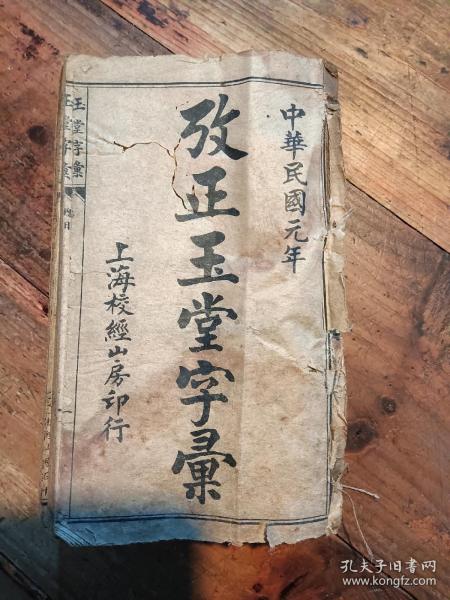 中華民國元年
攷正玉堂字彙
上海校經山房印行
玉堂字彙
孔夫子旧书网
www.kongfz.com